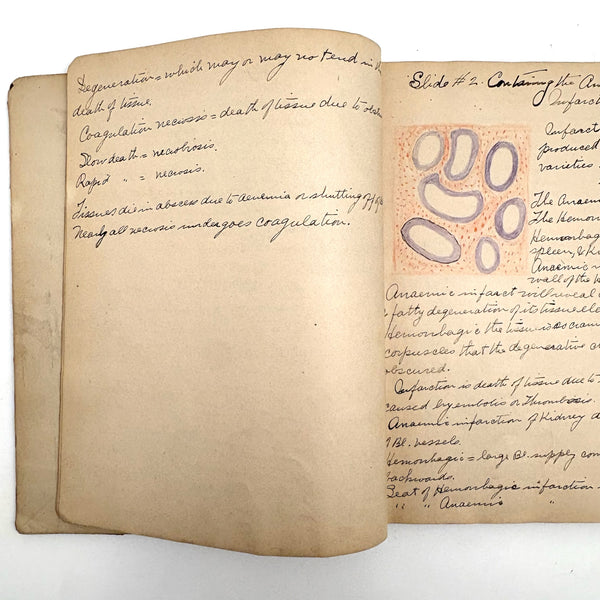 Degeneration = which may or may not tend in
death of tissue.
Coagulation necrosis = death of tissue due to
Slow death = necrobiosis.
Rapid " = necrosis.
Tissues die in abscess due to aenemia or shutting off of
Nearly all necrosis undergoes coagulation.
Slide #2 Containing the An
Infarct
Infarct
produced
varieties
The Anaem
The Hemor
Hemorrhag
spleen, & Ki
Anaemic in
wall of the
Anaemic infarct will reveal
fatty degeneration of its tissue ele
Hemorrhagic the tissue is so cram
corpuscles that the degenerative
obscured.
Infarction is death of tissue due to
caused by embolis or Thrombosis.
Anaemic infarction of Kidney
Bl. vessels.
Hemorrhagic = large Bl. supply com
backwards.
Seat of Hemorrhagic infarction
" " Anaemic "